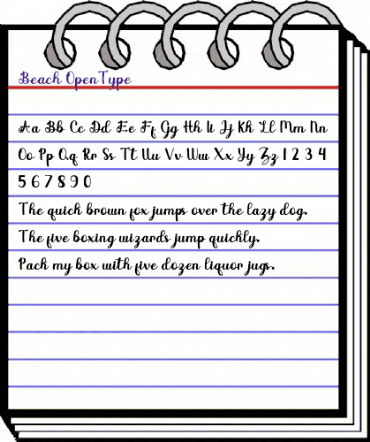 Beach OpenType
Aa Bb Cc Dd Ee Ff Gg Hh Ii Jj Kk Ll Mm Nn
Oo Pp Qq Rr Ss Tt Uu Vv Ww Xx Yy Zz 1 2 3 4
5 6 7 8 9 0
The quick brown fox jumps over the lazy dog.
The five boxing wizards jump quickly.
Pack my box with five dozen liquor jugs.